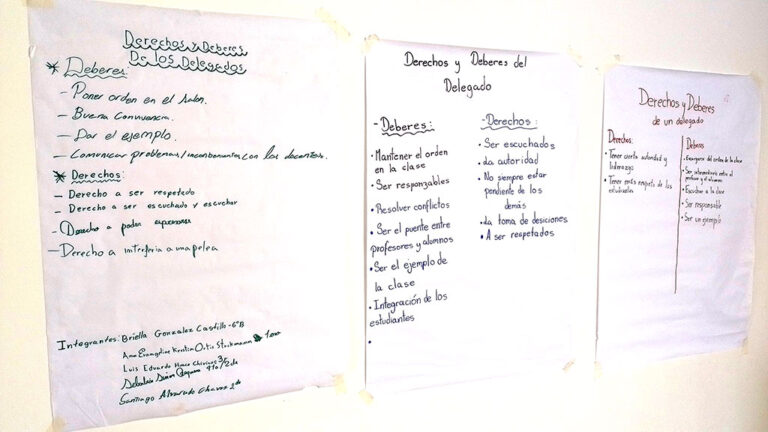 Derechos y Deberes
De los Delegados
Deberes:
- Poner orden en el salon.
- Buena Convivencia.
- Dar el ejemplo.
- Comunicar problemas/inconformidades con los docentes.
Derechos:
- Derecho a ser respetado
- Derecho a ser escuchado y escuchar
- Derecho a poder expresarse
- Derecho a interferir a una pelea
Integrantes: Briella Gonzalez Castillo - 6°B
Ana Evangeline Kristin Ortis
Luis Eduardo
Santiago Alvarado Chaves
Derechos y Deberes del
Delegado
- Deberes:
• Mantener el orden
en la clase
• Ser responzables
• Resolver conflictos
• Ser el puente entre
profesores y alumnos
• Ser el ejemplo de
la clase
• Integración de los
estudiantes
•
- Derechos:
• Ser escuchados
• La autoridad
• No siempre estar
pendiente de los
demás
• La toma de desiciones
• A ser respetados
Derechos y Deberes
de un delegado
Derechos:
• Tener cierta autoridad y
liderazgo
• Tener más respeto de los
estudiantes
Deberes
• Encargarse del orden de la clase
• Ser intermediario entre el
profesor y el alumno
• Escuchar a la clase
• Ser responsable
• Ser un ejemplo